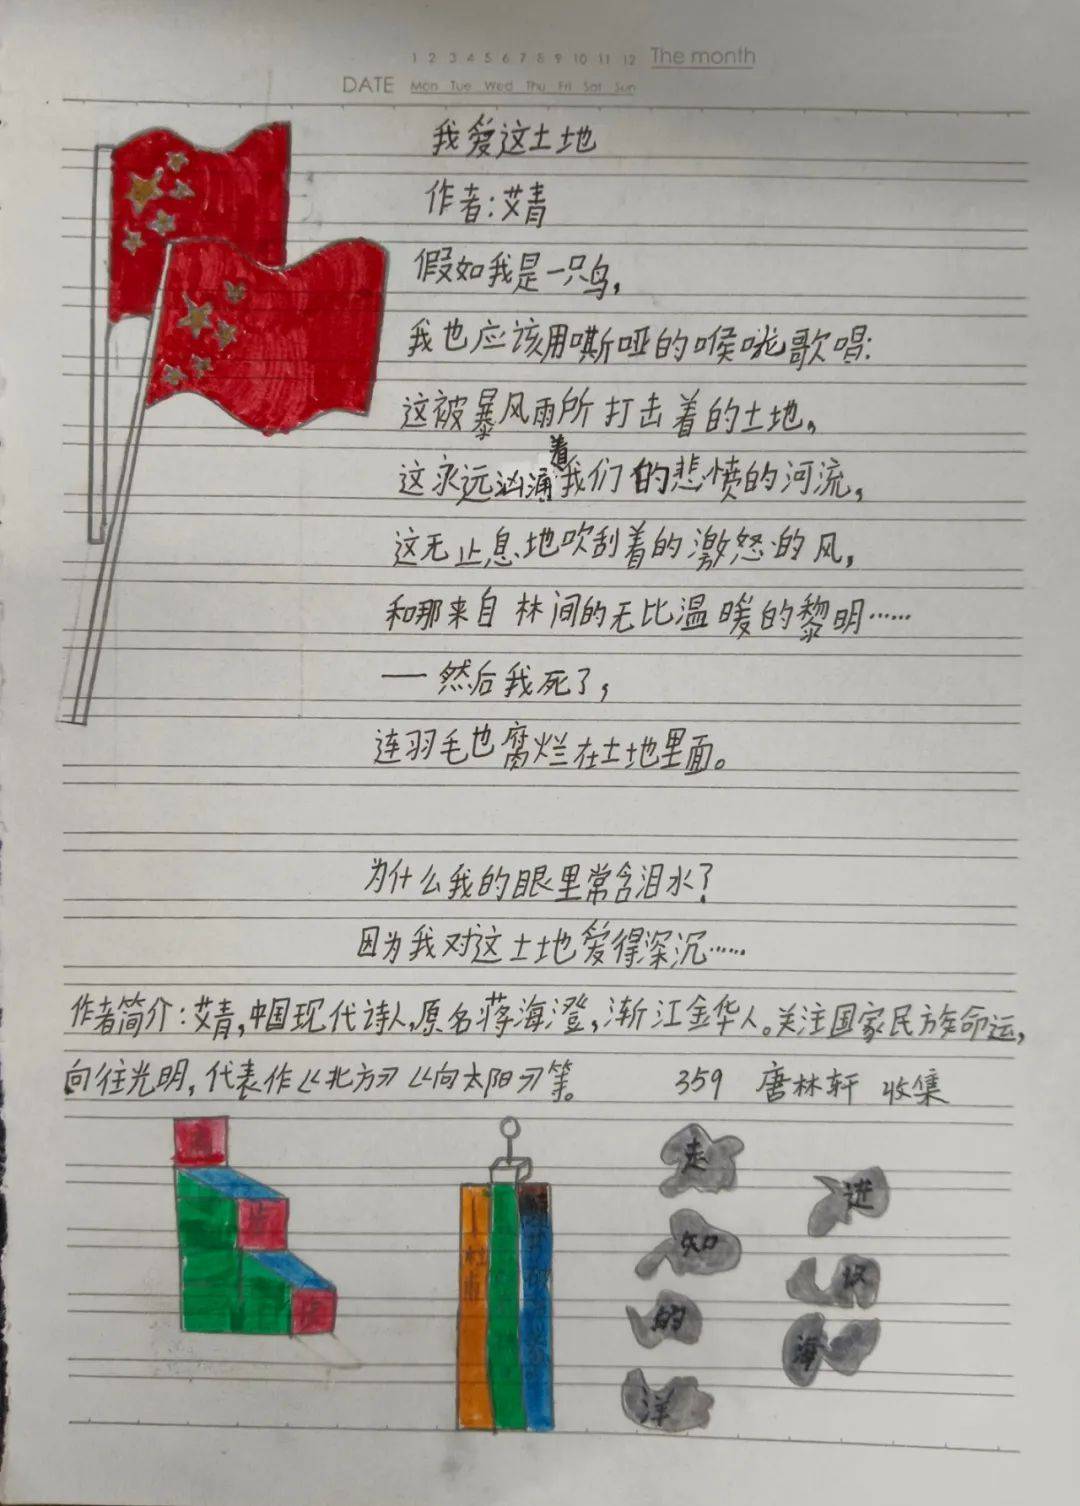 1 2 3 4 5 6 7 8 9 10 11 12 The month
DATE Mon Tue Wed Thu Fri Sat Sun
我爱这土地
作者:艾青
假如我是一只鸟,
我也应该用嘶哑的喉咙歌唱:
这被暴风雨所打击着的土地,
这永远汹涌着我们的悲愤的河流,
这无止息地吹刮着的激怒的风,
和那来自林间的无比温暖的黎明……
——然后我死了,
连羽毛也腐烂在土地里面。
为什么我的眼里常含泪水?
因为我对这土地爱得深沉……
作者简介:艾青,中国现代诗人,原名蒋海澄,浙江金华人。关注国家民族命运,
向往光明,代表作《北方》《向太阳》等。 359 唐林轩 收集
走
进
知
识
的
海
洋